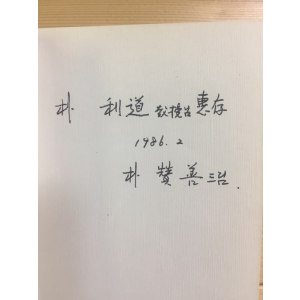 朴 利道 教授님 惠存
1986. 2
朴 贊 善 드림.